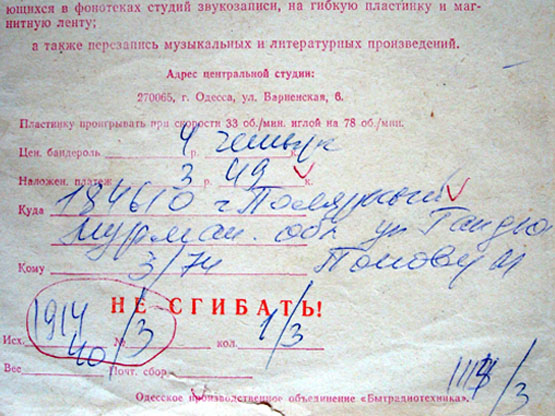 ющихся в фонотеках студий звукозаписи, на гибкую пластинку и маг-
нитную ленту;
а также перезапись музыкальных и литературных произведений.
Адрес центральной студии:
270065, г. Одесса, ул. Варненская, 6.
Пластинку проигрывать при скорости 33 об./мин. иглой на 78 об./мин.
Цен. бандероль 4 р. четыре к.
Наложен. платеж 3 р. 49 к.
Куда 184610 г Полярный
Мурман. обл. ул
Кому 3/74 Попову
НЕ СГИБАТЬ!
Исх. 1914/3 № 40 кол. 1/3
Вес Почт. сбор
/3
Одесское производственное объединение «Бытрадиотехника».